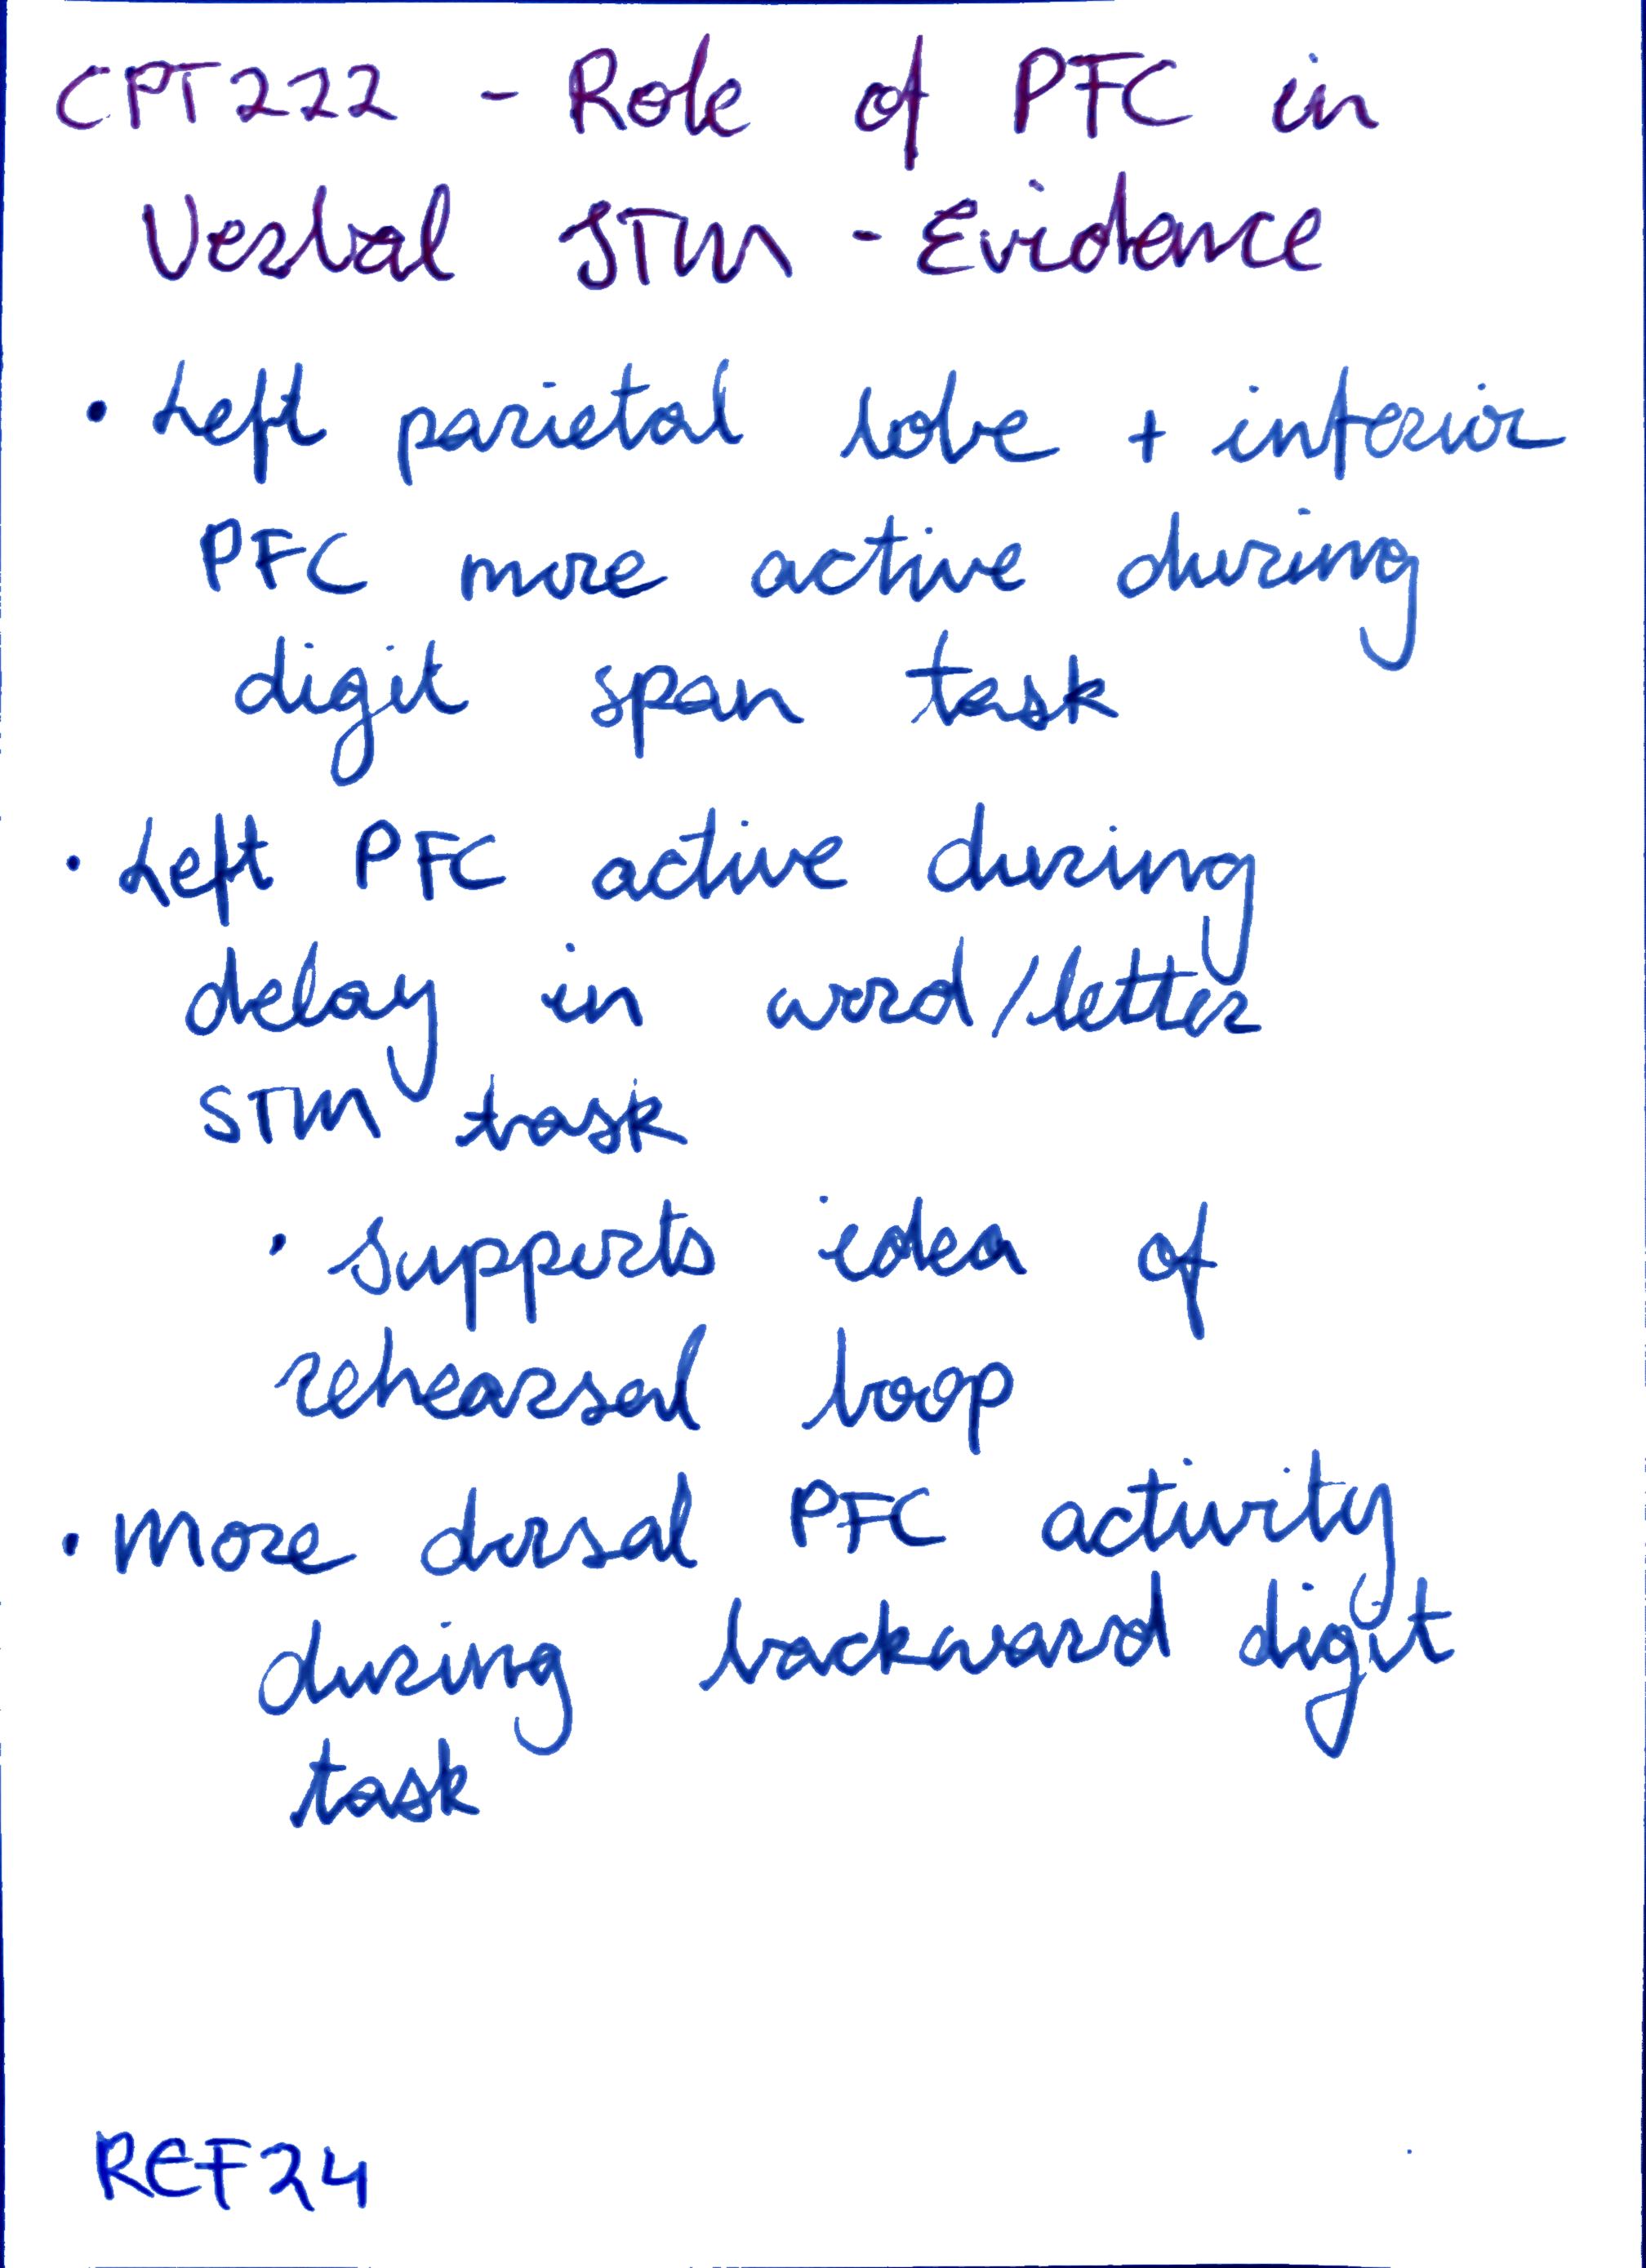 CPT222 - Role of PFC in
Verbal STM - Evidence
• Left parietal lobe + inferior
PFC more active during
digit span task
• Left PFC active during
delay in word/letter
STM task
• supports idea of
rehearsal loop
• More dorsal PFC activity
during backward digit
task
REF24